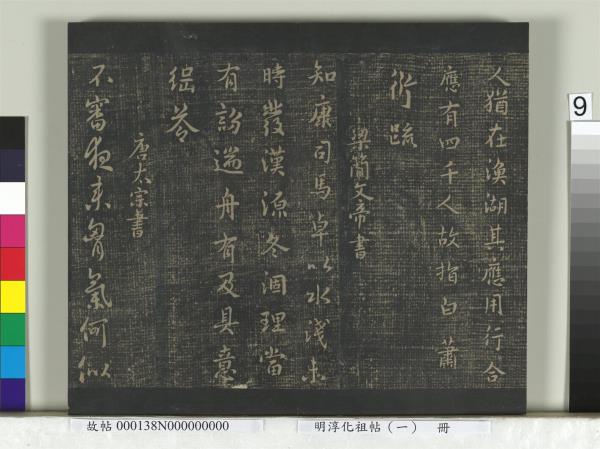 人猶在漁湖其應用行合
應有四千人故指白 蕭
衍疏
梁簡文帝書
知康司馬卓以水淺未
時發漢源冬涸理當
有訪遄舟有及具意
綜答
唐太宗書
不審夜來胷氣何似
9
故帖 000138N000000000
明淳化祖帖（一） 冊